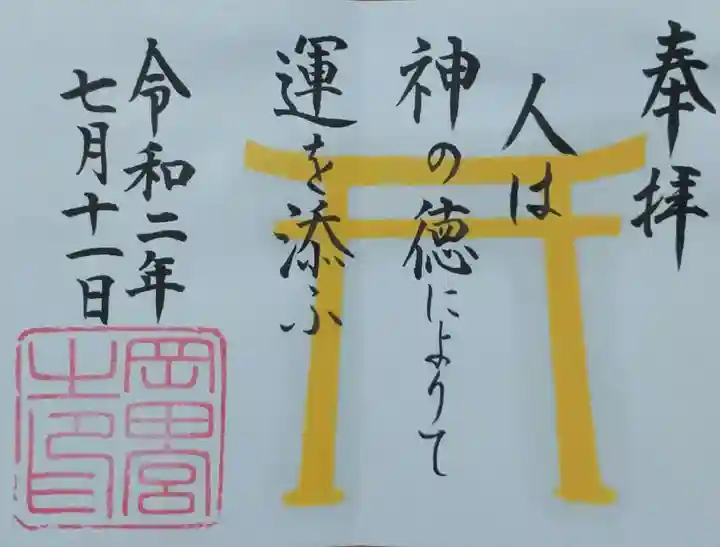 奉拝
人は
神の徳によりて
運を添ふ
令和二年
七月十一日
岡田宮
之印